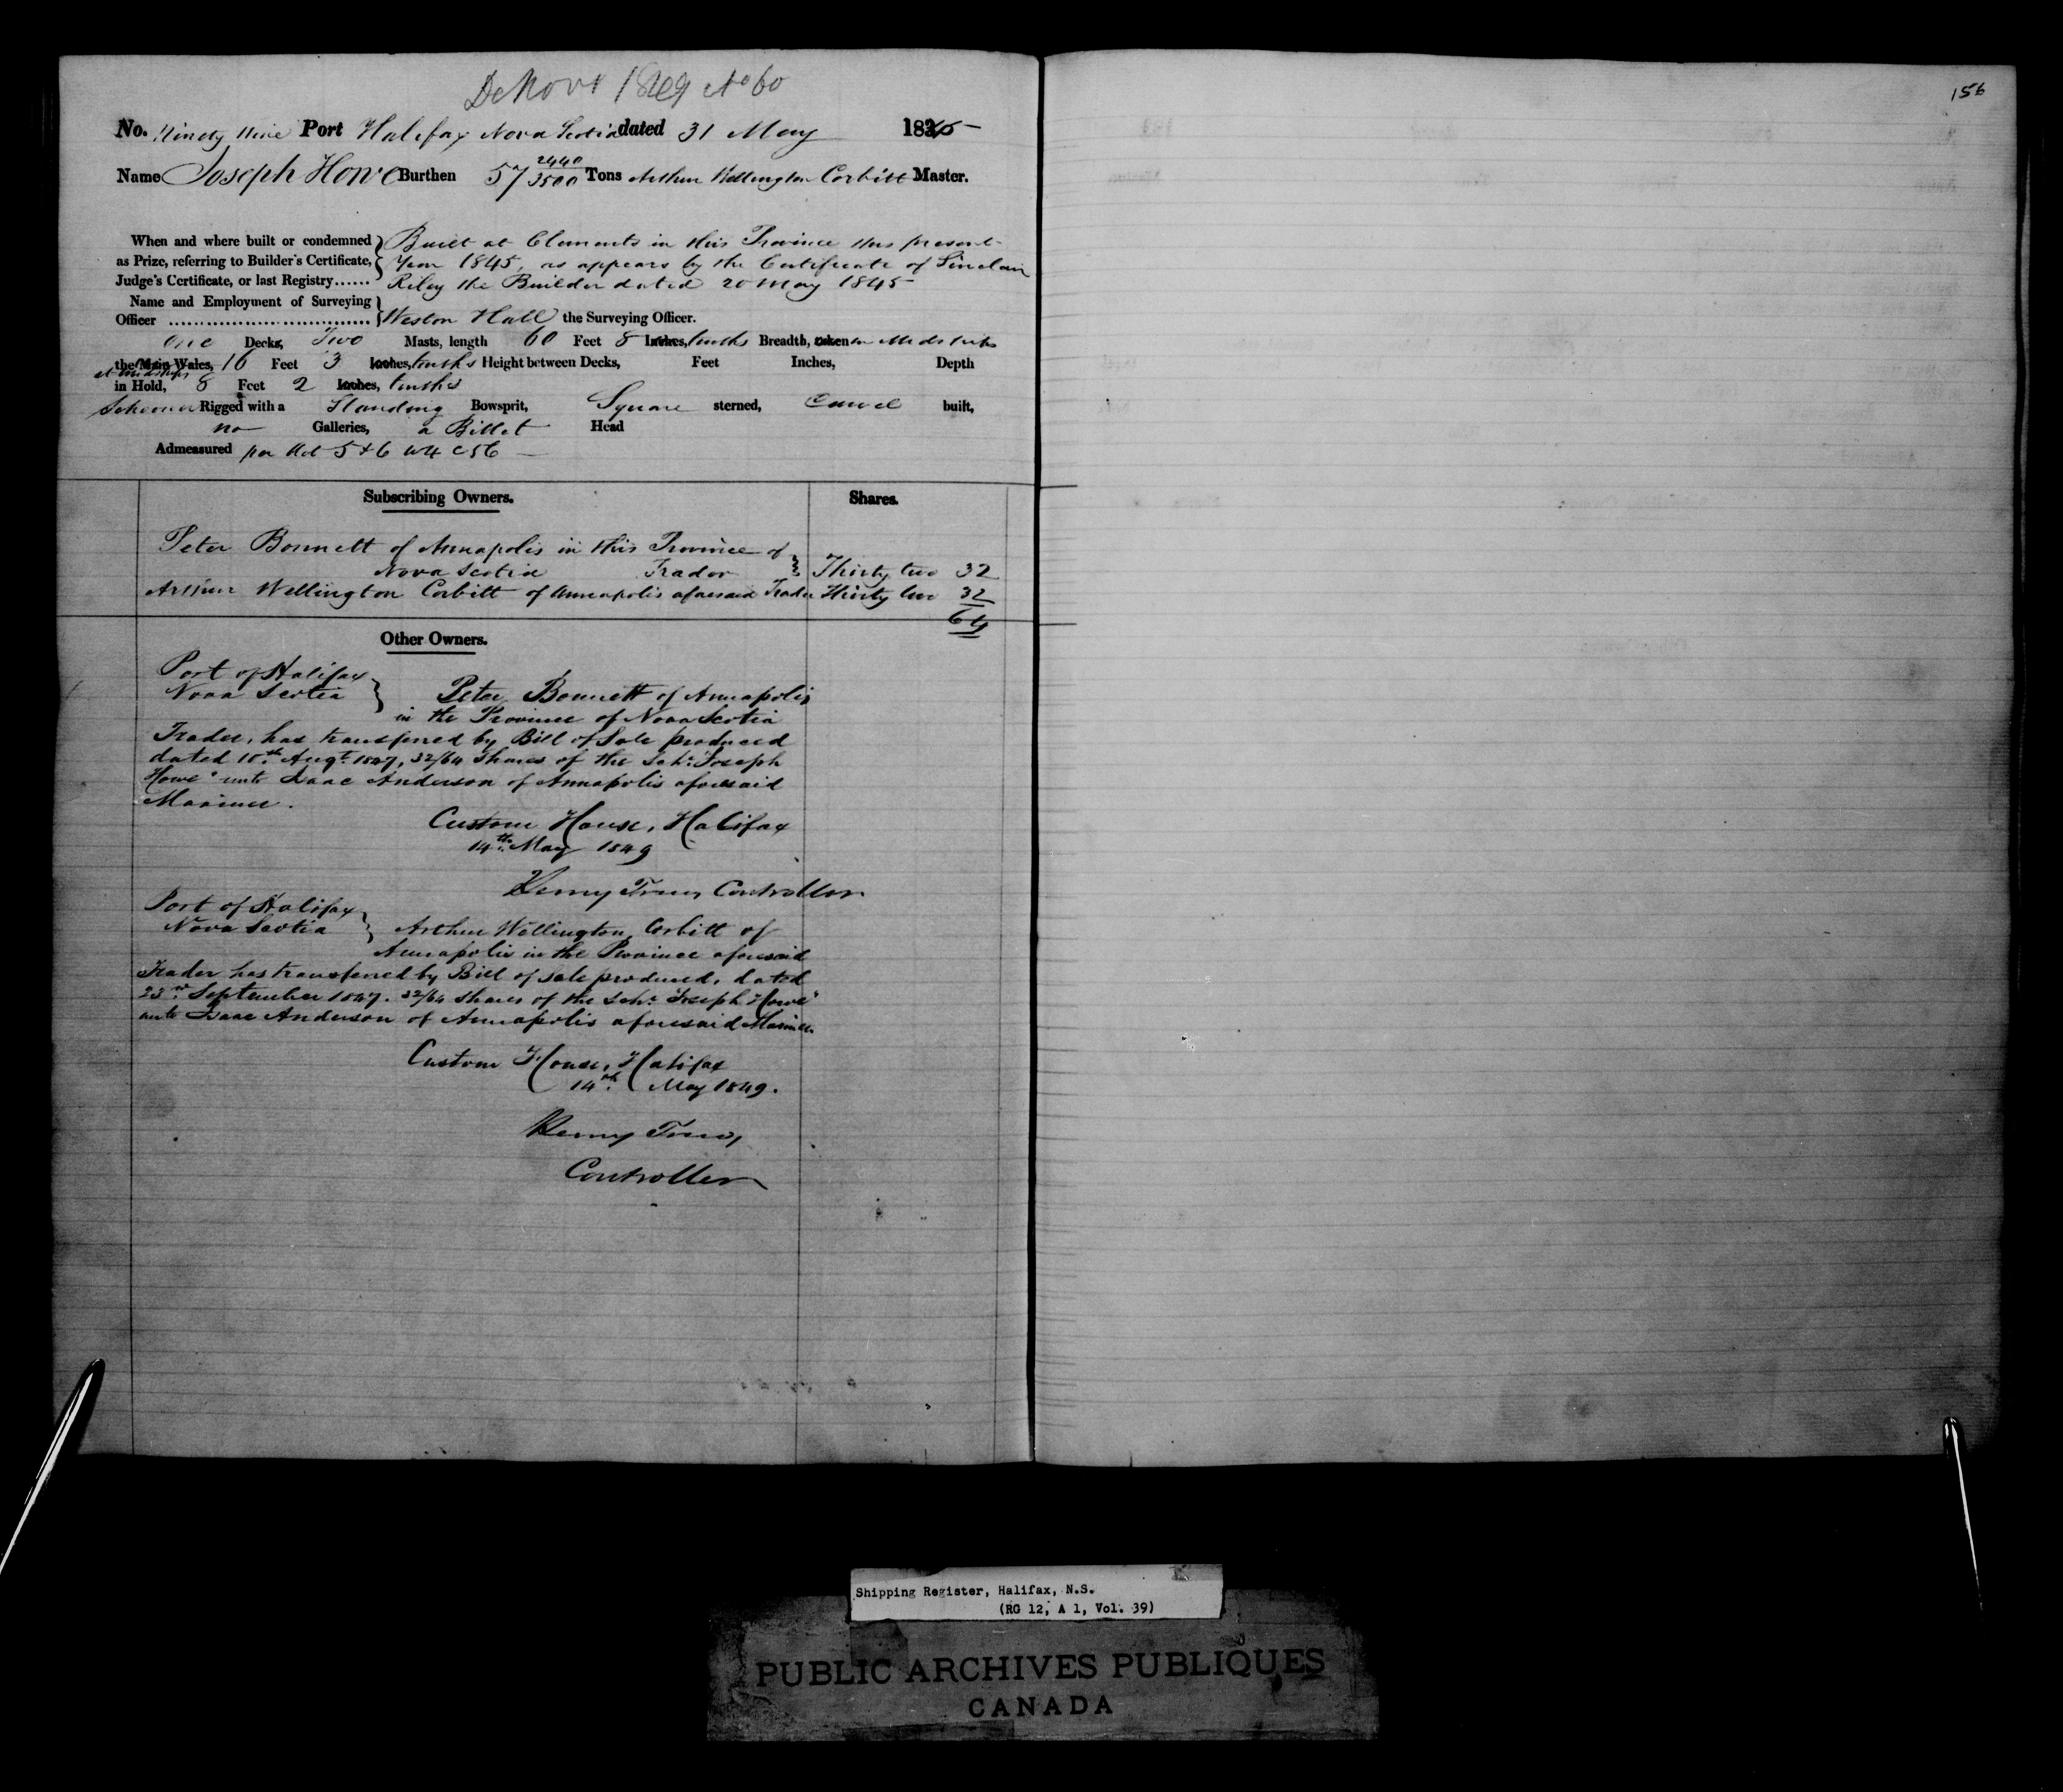 De Novo 1849 No 60
156
No. Ninety Nine Port Halifax Nova Scotia dated 31 May 1845
Name Joseph Howe Burthen 57 2440/3500 Tons Arthur Wellington Corbitt Master.
When and where built or condemned as Prize, referring to Builder's Certificate, Judge's Certificate, or last Registry......
Built at Clements in this Province this present
Year 1845, as appears by the Certificate of Sinclair
Riley the Builder dated 20 May 1845
Name and Employment of Surveying
Officer ........................ Weston Hall the Surveying Officer.
One Decks, Two Masts, length 60 Feet 8 Inches, tenths Breadth, taken in Midships
the Main Wales, 16 Feet 3 Inches, tenths Height between Decks, Feet Inches, Depth
at midships
in Hold, 8 Feet 2 Inches, tenths
Schooner Rigged with a Standing Bowsprit, Square sterned, Carvel built,
no Galleries, a Billet Head
Admeasured per Act 5 & 6 W4 C56
Subscribing Owners. Shares.
Peter Bonnett of Annapolis in this Province of
Nova Scotia Trader Thirty two 32
Arthur Wellington Corbitt of Annapolis aforesaid Trader Thirty two 32
64
Other Owners.
Port of Halifax
Nova Scotia } Peter Bonnett of Annapolis
in the Province of Nova Scotia
Trader, has transferred by Bill of Sale produced
dated 10th Augt 1847, 32/64 Shares of the Schr "Joseph
Howe" unto Isaac Anderson of Annapolis aforesaid
Mariner.
Custom House, Halifax
14th May 1849
Henry Trew, Controller
Port of Halifax
Nova Scotia } Arthur Wellington Corbitt of
Annapolis in the Province aforesaid
Trader has transferred by Bill of sale produced, dated
23rd September 1847. 32/64 shares of the Schr "Joseph Howe"
unto Isaac Anderson of Annapolis aforesaid Mariner.
Custom House, Halifax
14th May 1849.
Henry Trew,
Controller
Shipping Register, Halifax, N.S.
(RG 12, A 1, Vol. 39)
PUBLIC ARCHIVES PUBLIQUES
CANADA